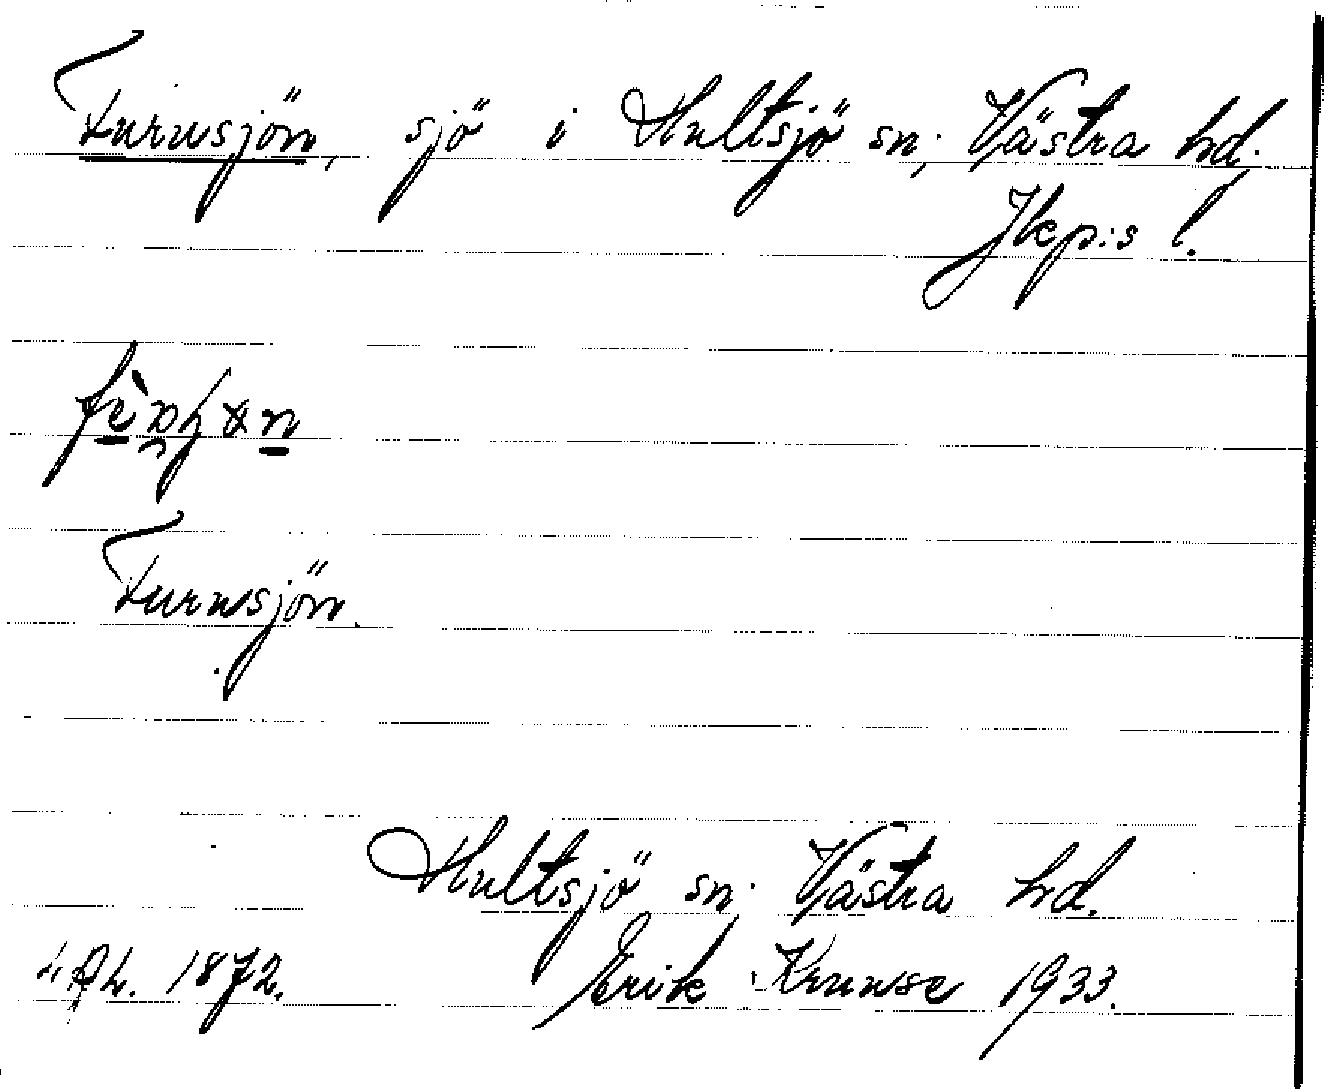 Furusjön, sjö i Hultsjö sn; Västra hd.
Jkp:s l.
Furusjön.
Hultsjö sn; Västra hd.
1872. Erik Kruuse 1933.